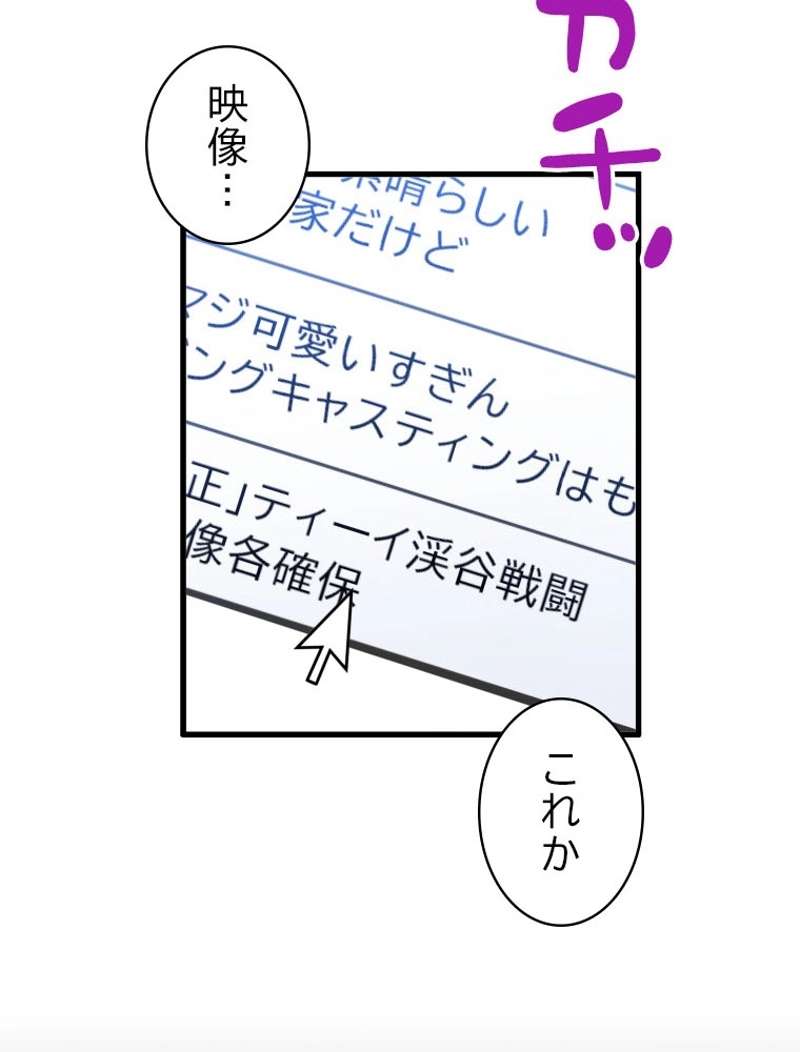 カチッ
映像…
素晴らしい
家だけど
マジ可愛いすぎん
ングキャスティングはも
正」ティーイ渓谷戦闘
像各確保
これか